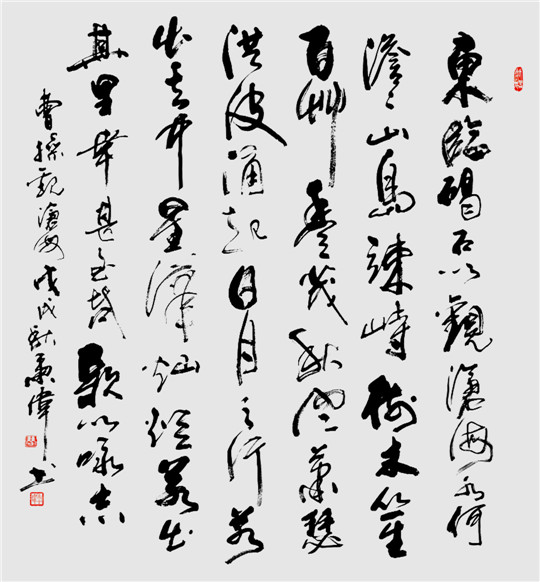 東臨碣石以觀滄海水何
澹澹山島竦峙樹木叢生
百草豐茂秋風蕭瑟
洪波涌起日月之行若
出其中星漢灿爛若出
其里幸甚至哉歌以咏志
曹操觀滄海戊戌秋偉书